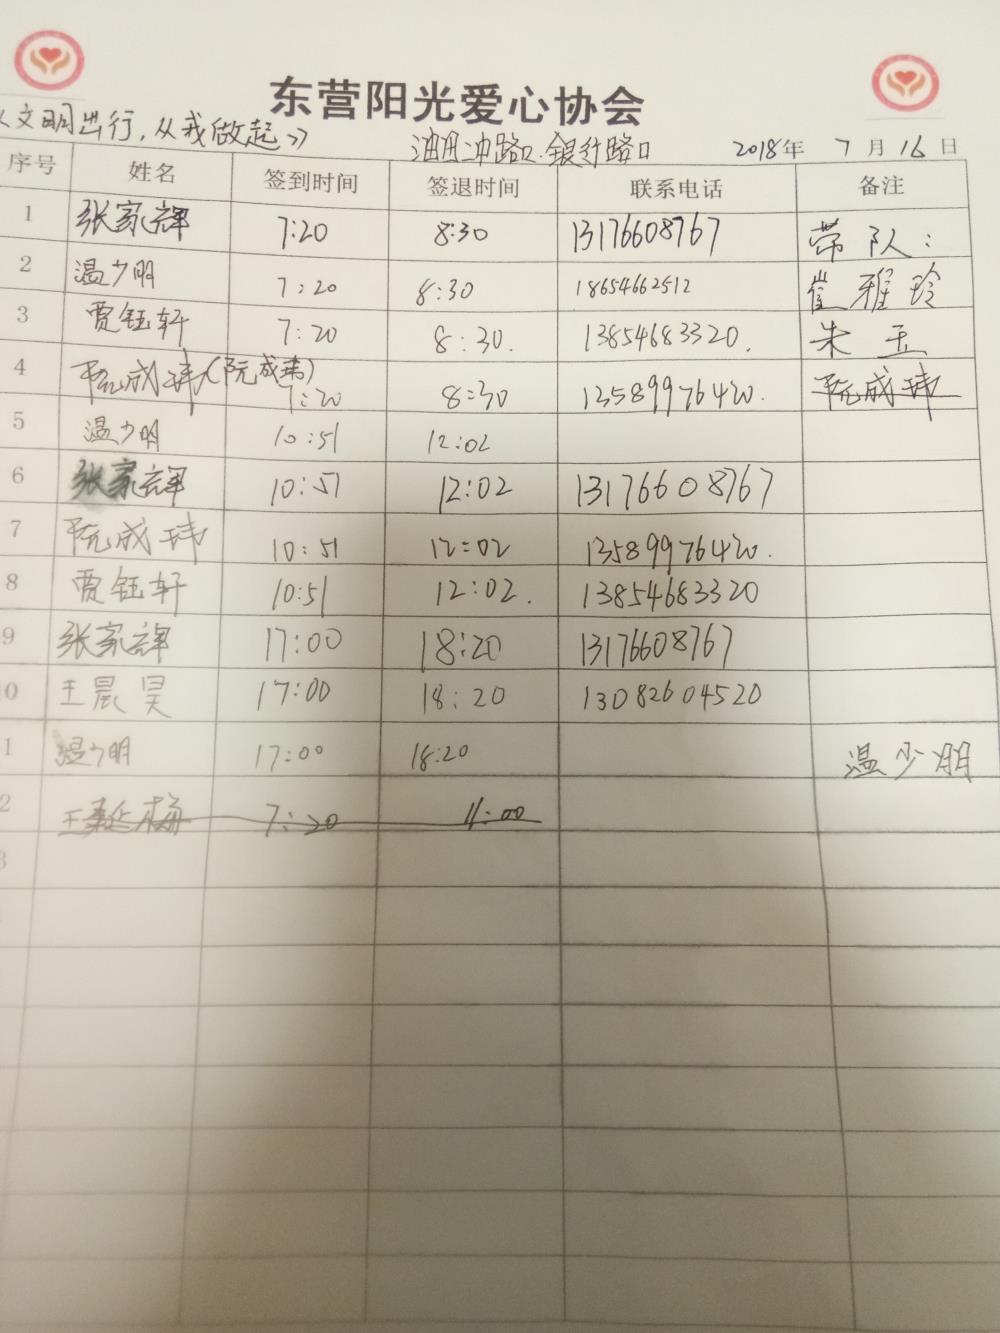 东营阳光爱心协会
《文明出行,从我做起》 油田冲路口.银行路口 2018年 7月16日
序号 姓名 签到时间 签退时间 联系电话 备注
1 张家辉 7:20 8:30 13176608767 带队:
2 温少明 7:20 8:30 18654662512 崔雅玲
3 贾钰轩 7:20 8:30. 13854683320. 朱玉
4 阮成玮(阮成玮) 7:20 8:30 13589976420. 阮成玮
5 温少明 10:51 12:02
6 张家辉 10:51 12:02 13176608767
7 阮成玮 10:51 12:02 13589976420.
8 贾钰轩 10:51 12:02. 13854683320
9 张家辉 17:00 18:20 13176608767
0 王晨昊 17:00 18:20 13082604520
1 温少明 17:00 18:20 温少明
2 王 梅 7:20 11:00
3